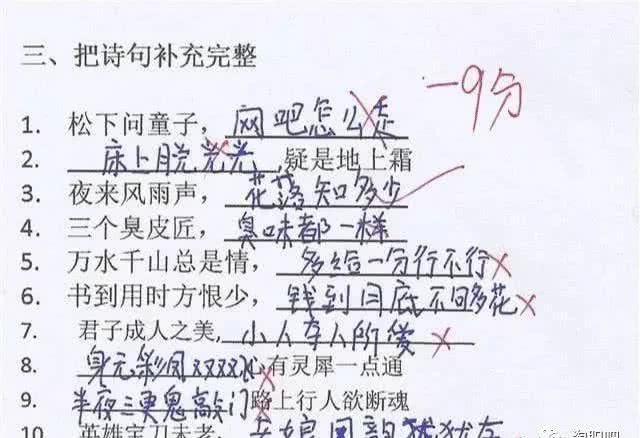 三、把诗句补充完整
-9分
1. 松下问童子，网吧怎么走
2. 床上脱光光,疑是地上霜
3. 夜来风雨声，花落知多少
4. 三个臭皮匠，臭味都一样
5. 万水千山总是情，多给一分行不行
6. 书到用时方恨少，钱到月底不够花
7. 君子成人之美,小人夺人所爱
8. 身无彩凤双双飞,有灵犀一点通
9. 半夜三更鬼敲门路上行人欲断魂
10 英雄宝刀未老，